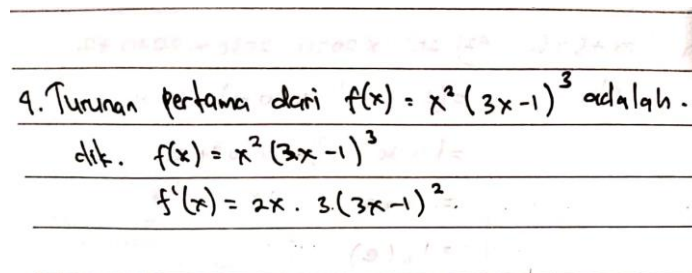 9. Turunan pertama dari f(x) = x² (3x-1)³ adalah.
dik. f(x) = x² (3x-1)³
f'(x) = 2x . 3.(3x-1)².